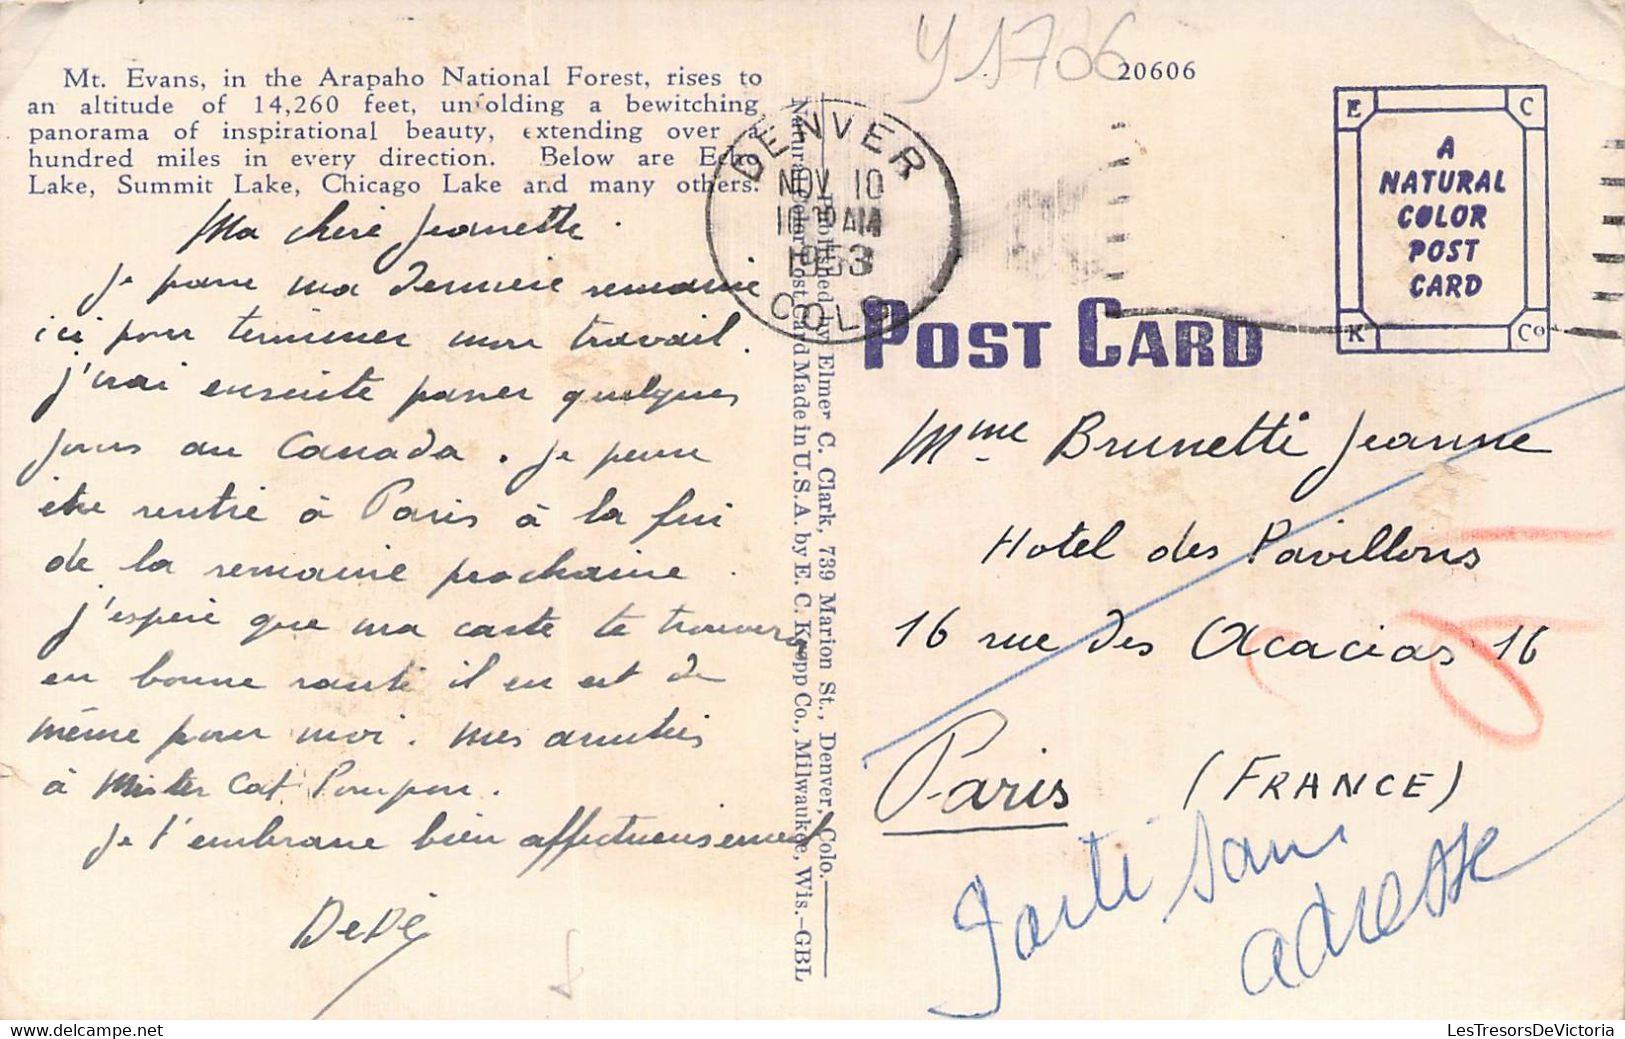 Mt. Evans, in the Arapaho National Forest, rises to
an altitude of 14,260 feet, unfolding a bewitching
panorama of inspirational beauty, extending over a
hundred miles in every direction. Below are Echo
Lake, Summit Lake, Chicago Lake and many others.
Ma chère Jeannette.
Je passe ma dernière semaine
ici pour terminer mon travail.
J'irai ensuite passer quelques
jours au Canada. Je pense
être rentré à Paris à la fin
de la semaine prochaine.
J'espère que ma carte te trouvera
en bonne santé il en est de
même pour moi. Mes amitiés
à Mister Cat Pompon.
Je t'embrasse bien affectueusement
DeDé
Published by Elmer C. Clark, 739 Marion St., Denver, Colo.
Natural Color Post Card Made in U.S.A. by E. C. Kropp Co., Milwaukee, Wis.-GBL
Y 1706
20606
DENVER
NOV 10
AM
1953
COLO
POST CARD
E C
A
NATURAL
COLOR
POST
CARD
K Co
Mme Brunetti Jeanne
Hotel des Pavillons
16 rue des Acacias 16
Paris (FRANCE)
Parti sans
adresse
LesTresorsDeVictoria